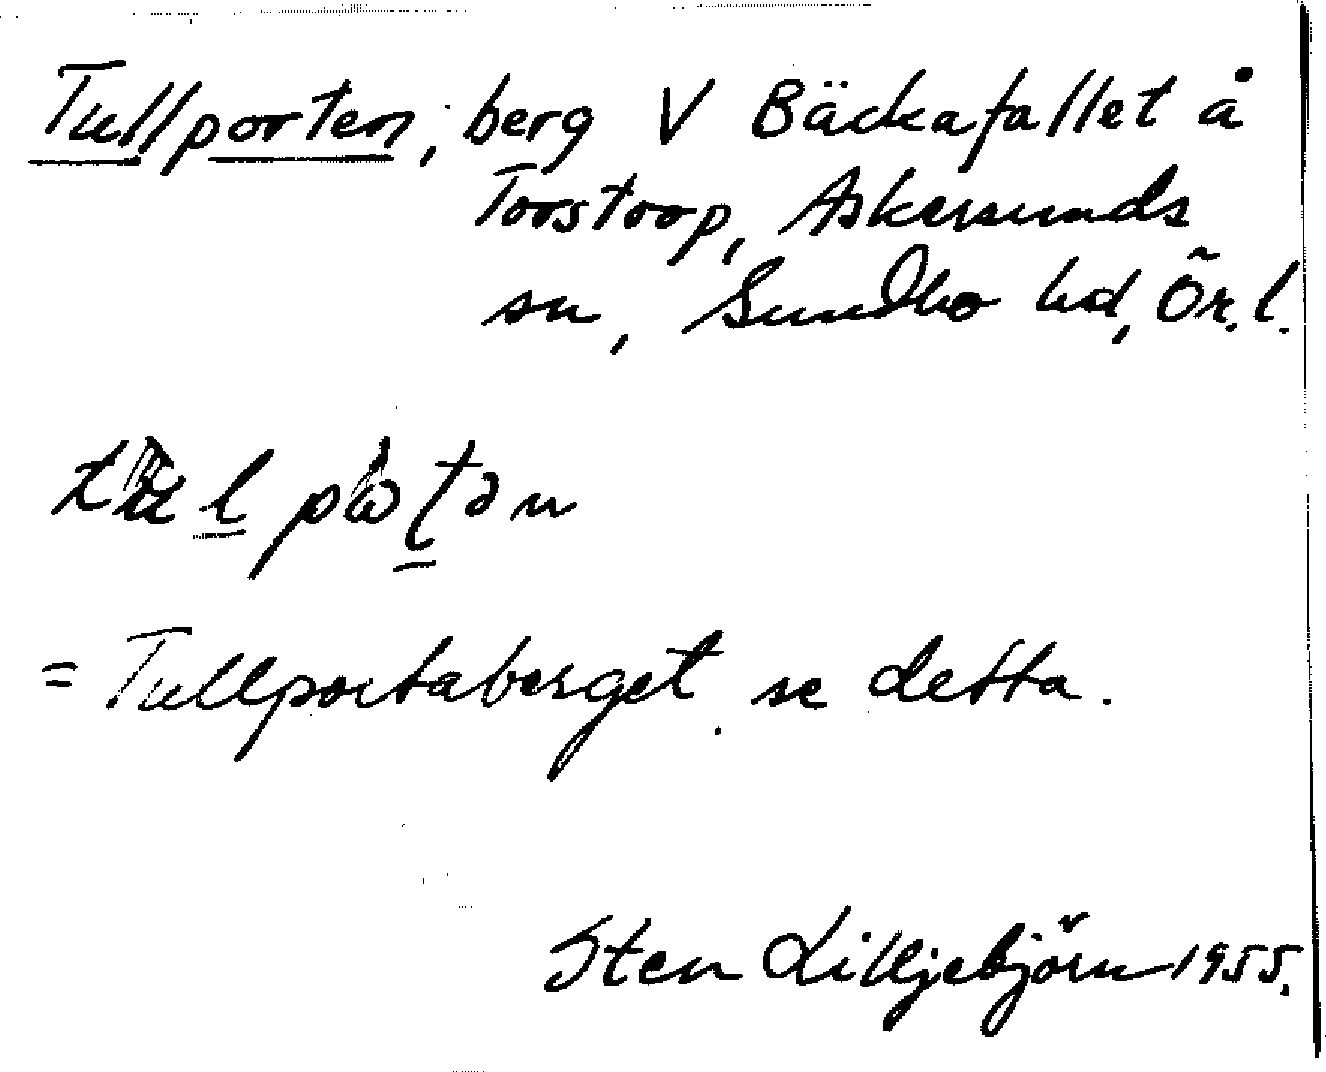 Tullporten, berg V Bäckafallet å
Torstorp, Askersunds
sn, Sundbo hd, Ör. l.
= Tullportaberget. se detta.
Sten Lilljebjörn 1955.